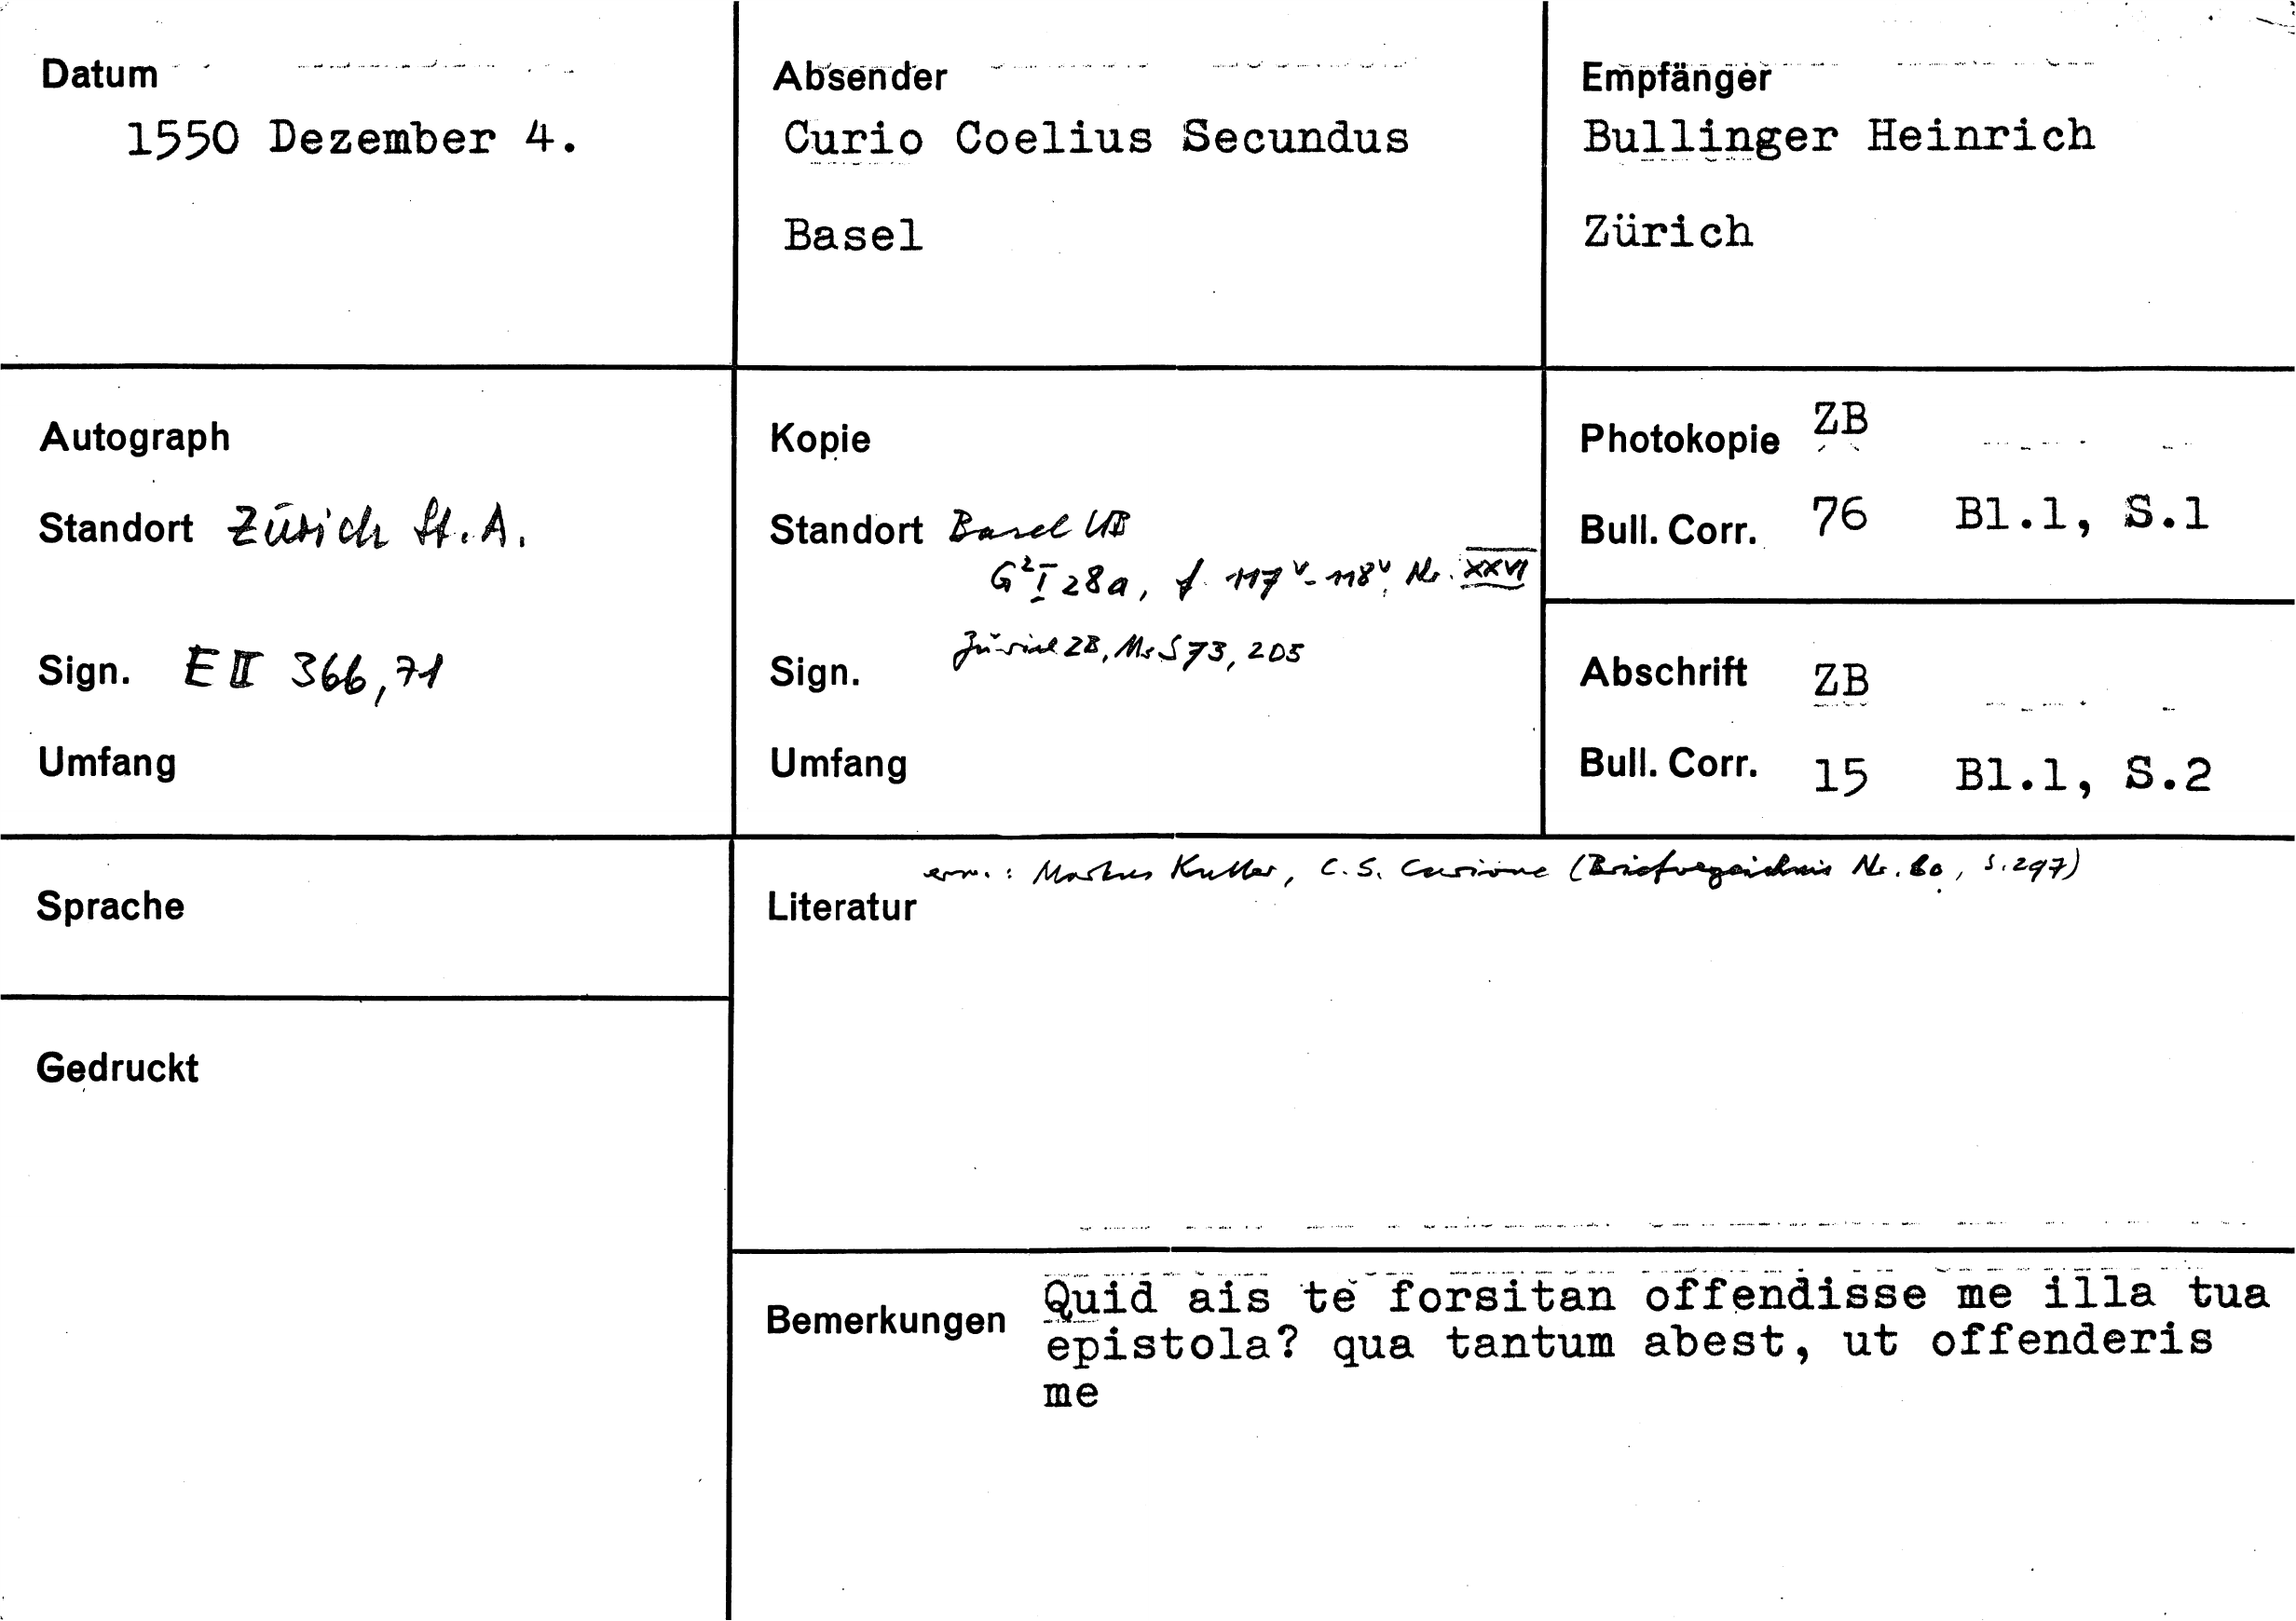 Datum
1550 Dezember 4.
Absender
Curio Coelius Secundus
Basel
Empfänger
Bullinger Heinrich
Zürich
Autograph
Standort Zürich St.A.
Sign. E II 366,71
Umfang
Kopie
Standort Basel UB
G² I 28a, f. 117v-118v, Nr. XXVI
Zürich ZB, Ms S 73, 205
Sign.
Umfang
Photokopie ZB
Bull. Corr. 76 Bl.1, S.1
Abschrift ZB
Bull. Corr. 15 Bl.1, S.2
Sprache
erw.: Markus Kutter, C. S. Curione (Briefverzeichnis Nr. 60, S. 297)
Literatur
Gedruckt
Bemerkungen Quid ais te forsitan offendisse me illa tua
epistola? qua tantum abest, ut offenderis
me